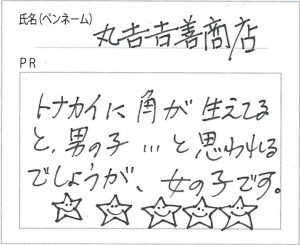 氏名(ペンネーム)
丸𠮷𠮷善商店
PR
トナカイに角が生えてる
と、男の子…と思われる
でしょうが、女の子です。